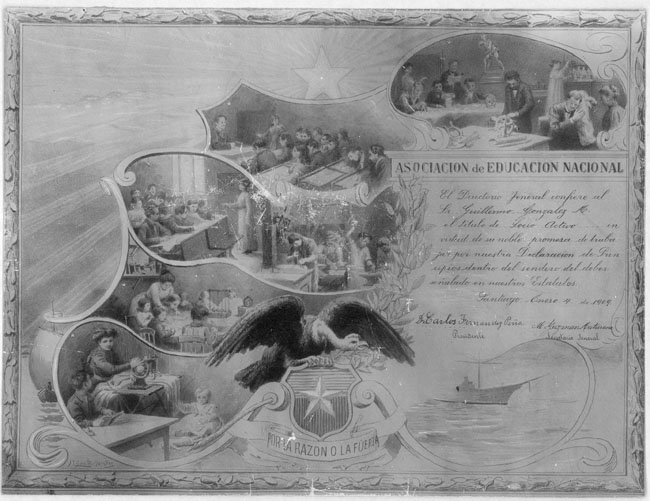 ASOCIACION de EDUCACION NACIONAL
El Directorio Jeneral confiere al
Sr. Guillermo Gonzalez M.
el título de Socio Activo en
virtud de su noble promesa de traba
jar por nuestra Declaracion de Prin
cipios dentro del sendero del deber
señalado en nuestros Estatutos.
Santiago Enero 4 de 1909
Carlos Fernandez Peña
Presidente
POR LA RAZON O LA FUERZA